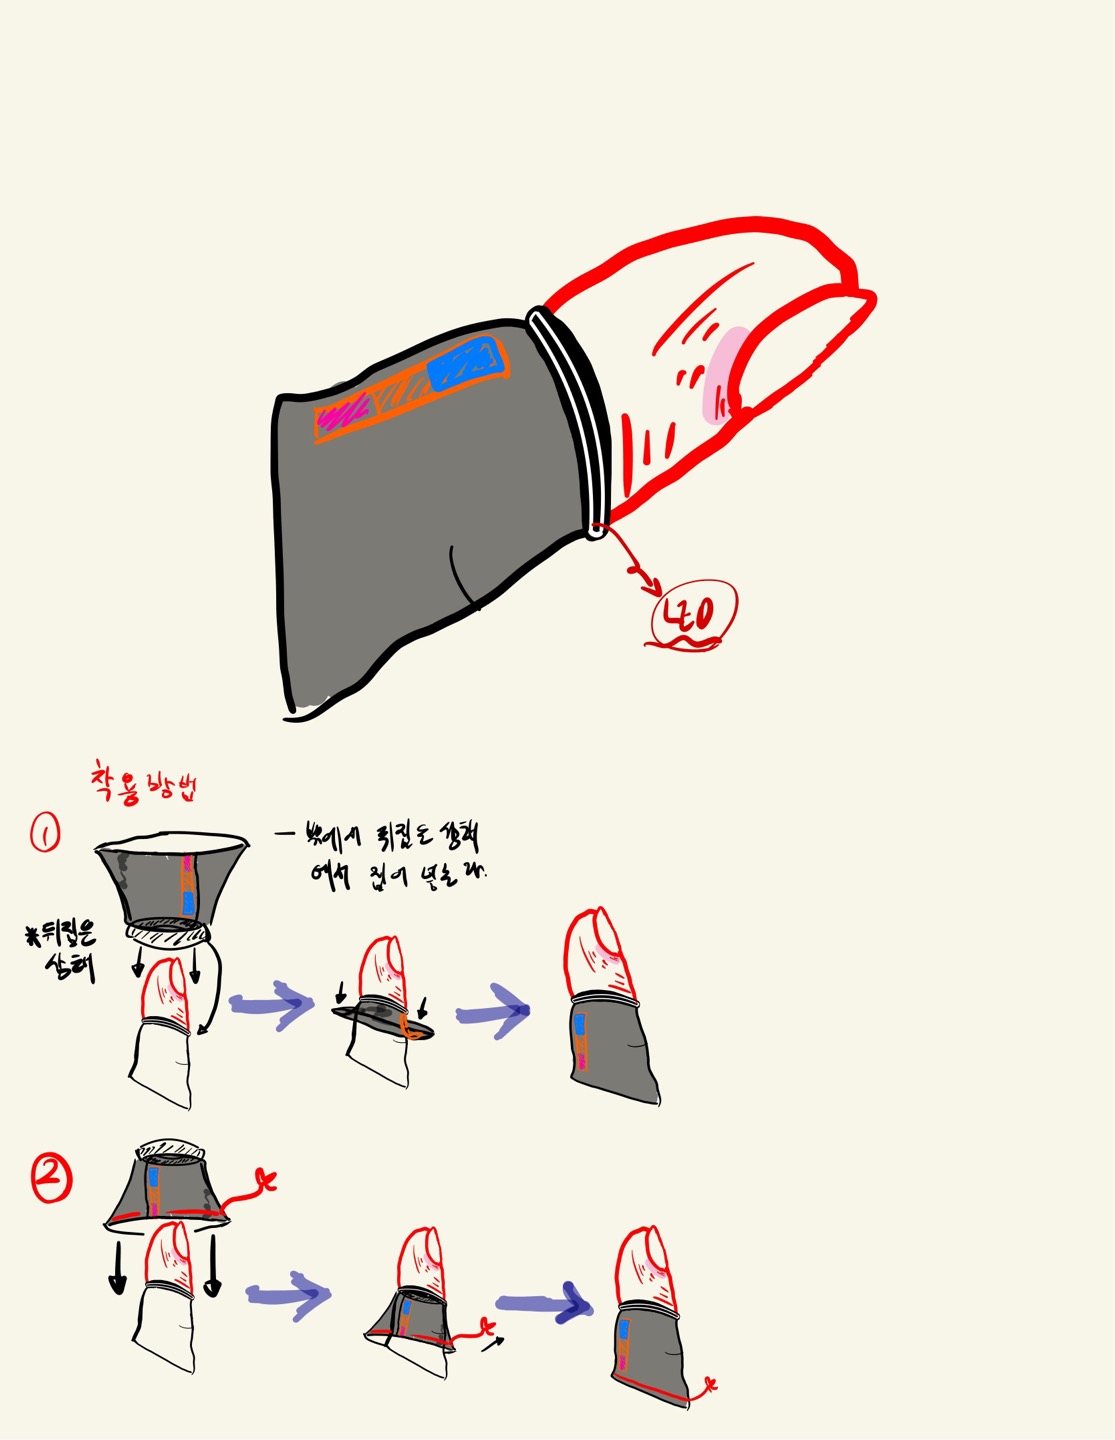 LED
착용방법
①
— 밖에서 뒤집은 상태
에서 집어 넣는다.
※뒤집은
상태
②